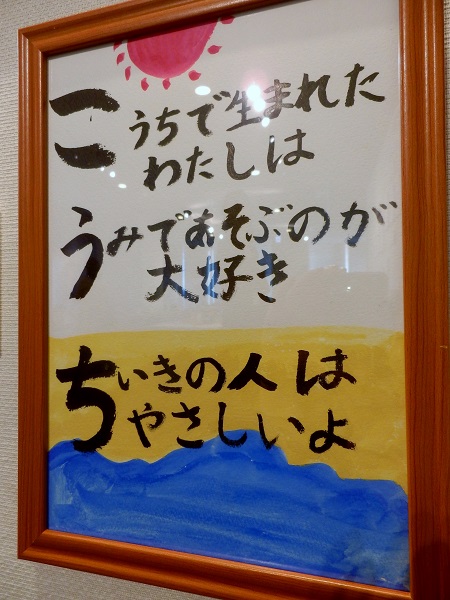 こうちで生まれた
わたしは
うみであそぶのが
大好き
ちいきの人は
やさしいよ